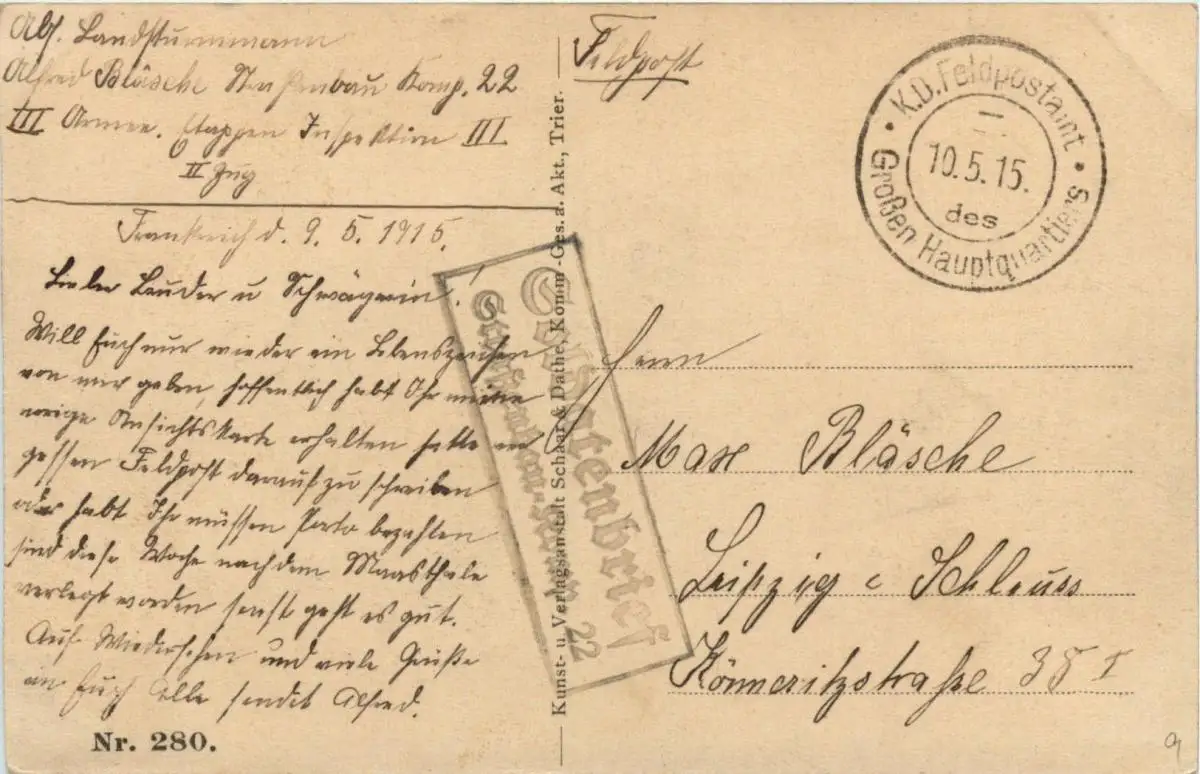 Abs. Landsturmmann
Alfred Bläsche Straßenbau Komp. 22
III Armee. Etappen Inspektion III
II Zug
Frankreich d. 9. 5. 1915.
Lieber Bruder u Schwägerin!
Will Euch nur wieder ein Lebenszeichen
von mir geben, hoffentlich habt Ihr meine
vorige Ansichtskarte erhalten hatte ver
gessen Feldpost darauf zu schreiben
oder habt Ihr müssen Porto bezahlen
sind diese Woche nach dem Maasthale
verlegt worden sonst geht es gut.
Auf Wiedersehen und viele Grüße
an Euch Alle sendet Alfred.
Nr. 280.
Kunst- u. Verlagsanstalt Schaar & Dathe, Komm.-Ges. a. Akt., Trier.
Soldatenbrief
Straßenbau-Komp. 22
Feldpost
K.D. Feldpostamt
10.5.15.
des
Großen Hauptquartiers
Herrn
Max Bläsche
Leipzig Schleuss
Könneritzstraße 38 I
9